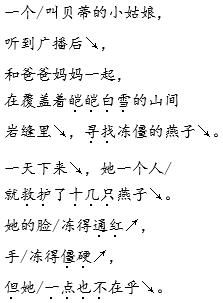 一个/叫贝蒂的小姑娘，
听到广播后↘，
和爸爸妈妈一起，
在覆盖着皑皑白雪的山间
岩缝里↘，寻找冻僵的燕子↘。
一天下来↘，她一个人/
就救护了十几只燕子↘。
她的脸/冻得通红↗，
手/冻得僵硬↗，
但她/一点也不在乎↘。